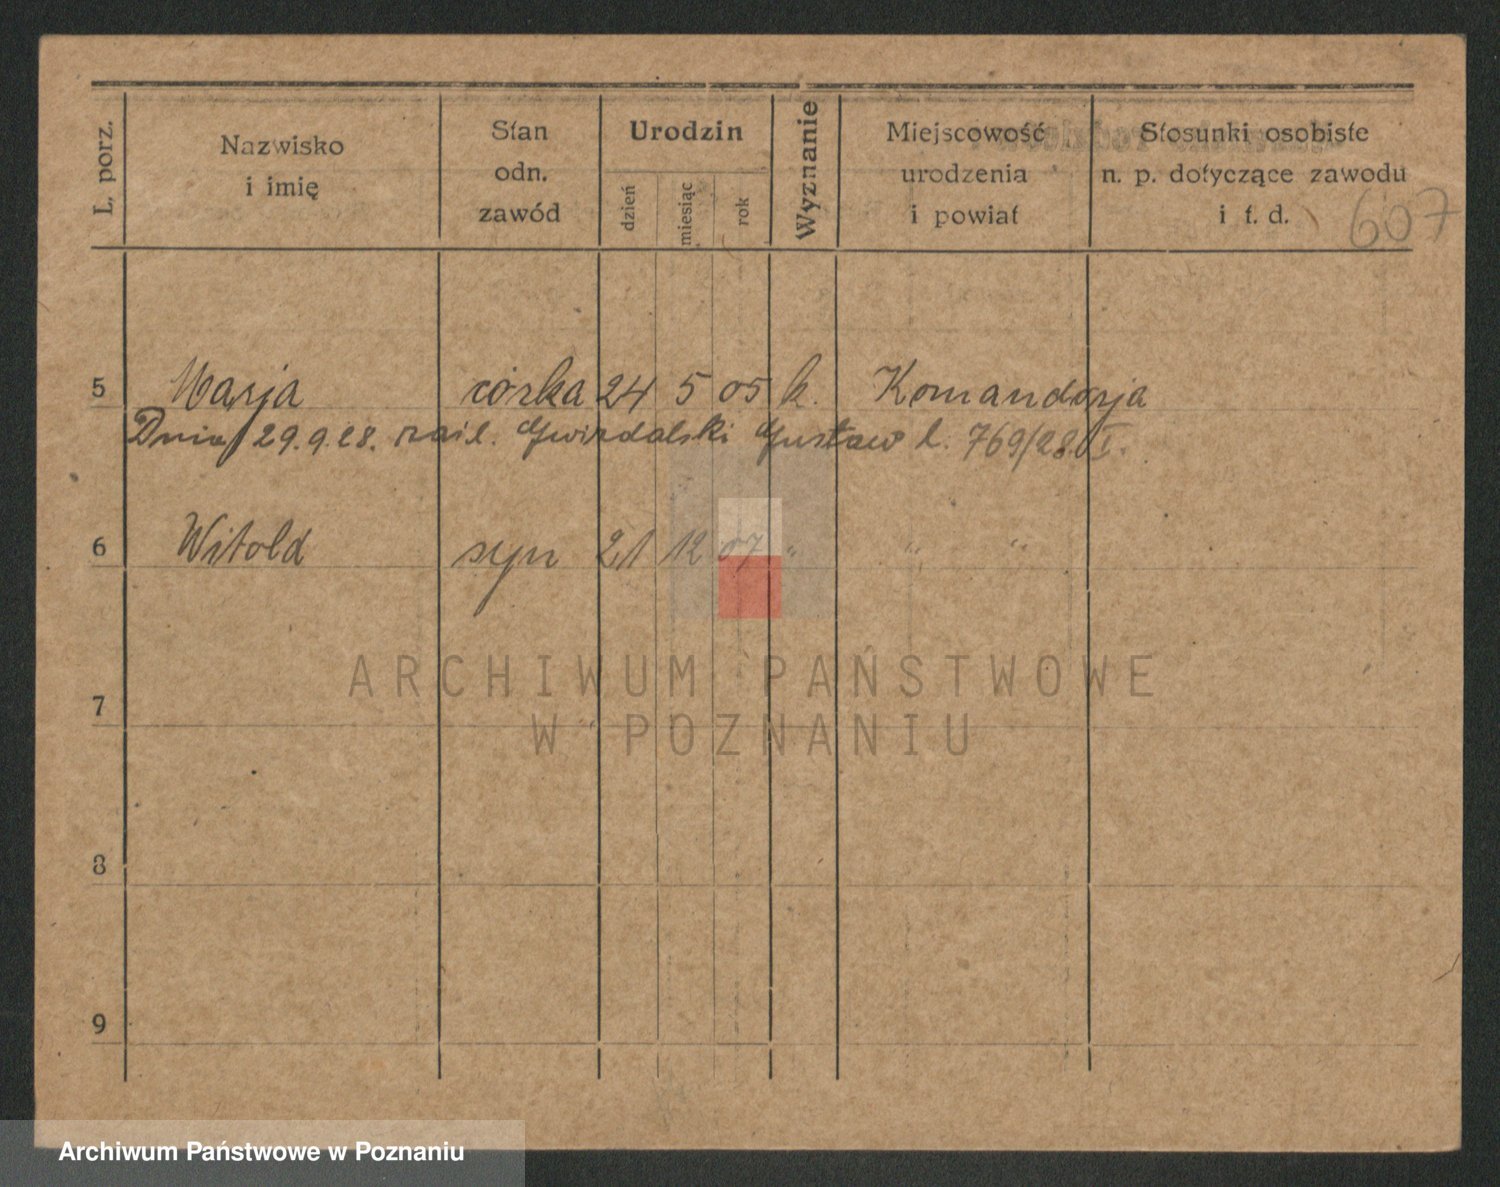 L. porz.
Nazwisko
i imię
Stan
odn.
zawód
Urodzin
dzień
miesiąc
rok
Wyznanie
Miejscowość
urodzenia
i powiat
Stosunki osobiste
n. p. dotyczące zawodu
i t. d.
607
5 Marja córka 24 5 05 k. Komandorja
Dnia 29.9.28. zaśl. Gwizdalski Gustaw l. 769/28. I.
6 Witold syn 21 12 07 " " "
7
8
9
ARCHIWUM PAŃSTWOWE
W POZNANIU
Archiwum Państwowe w Poznaniu